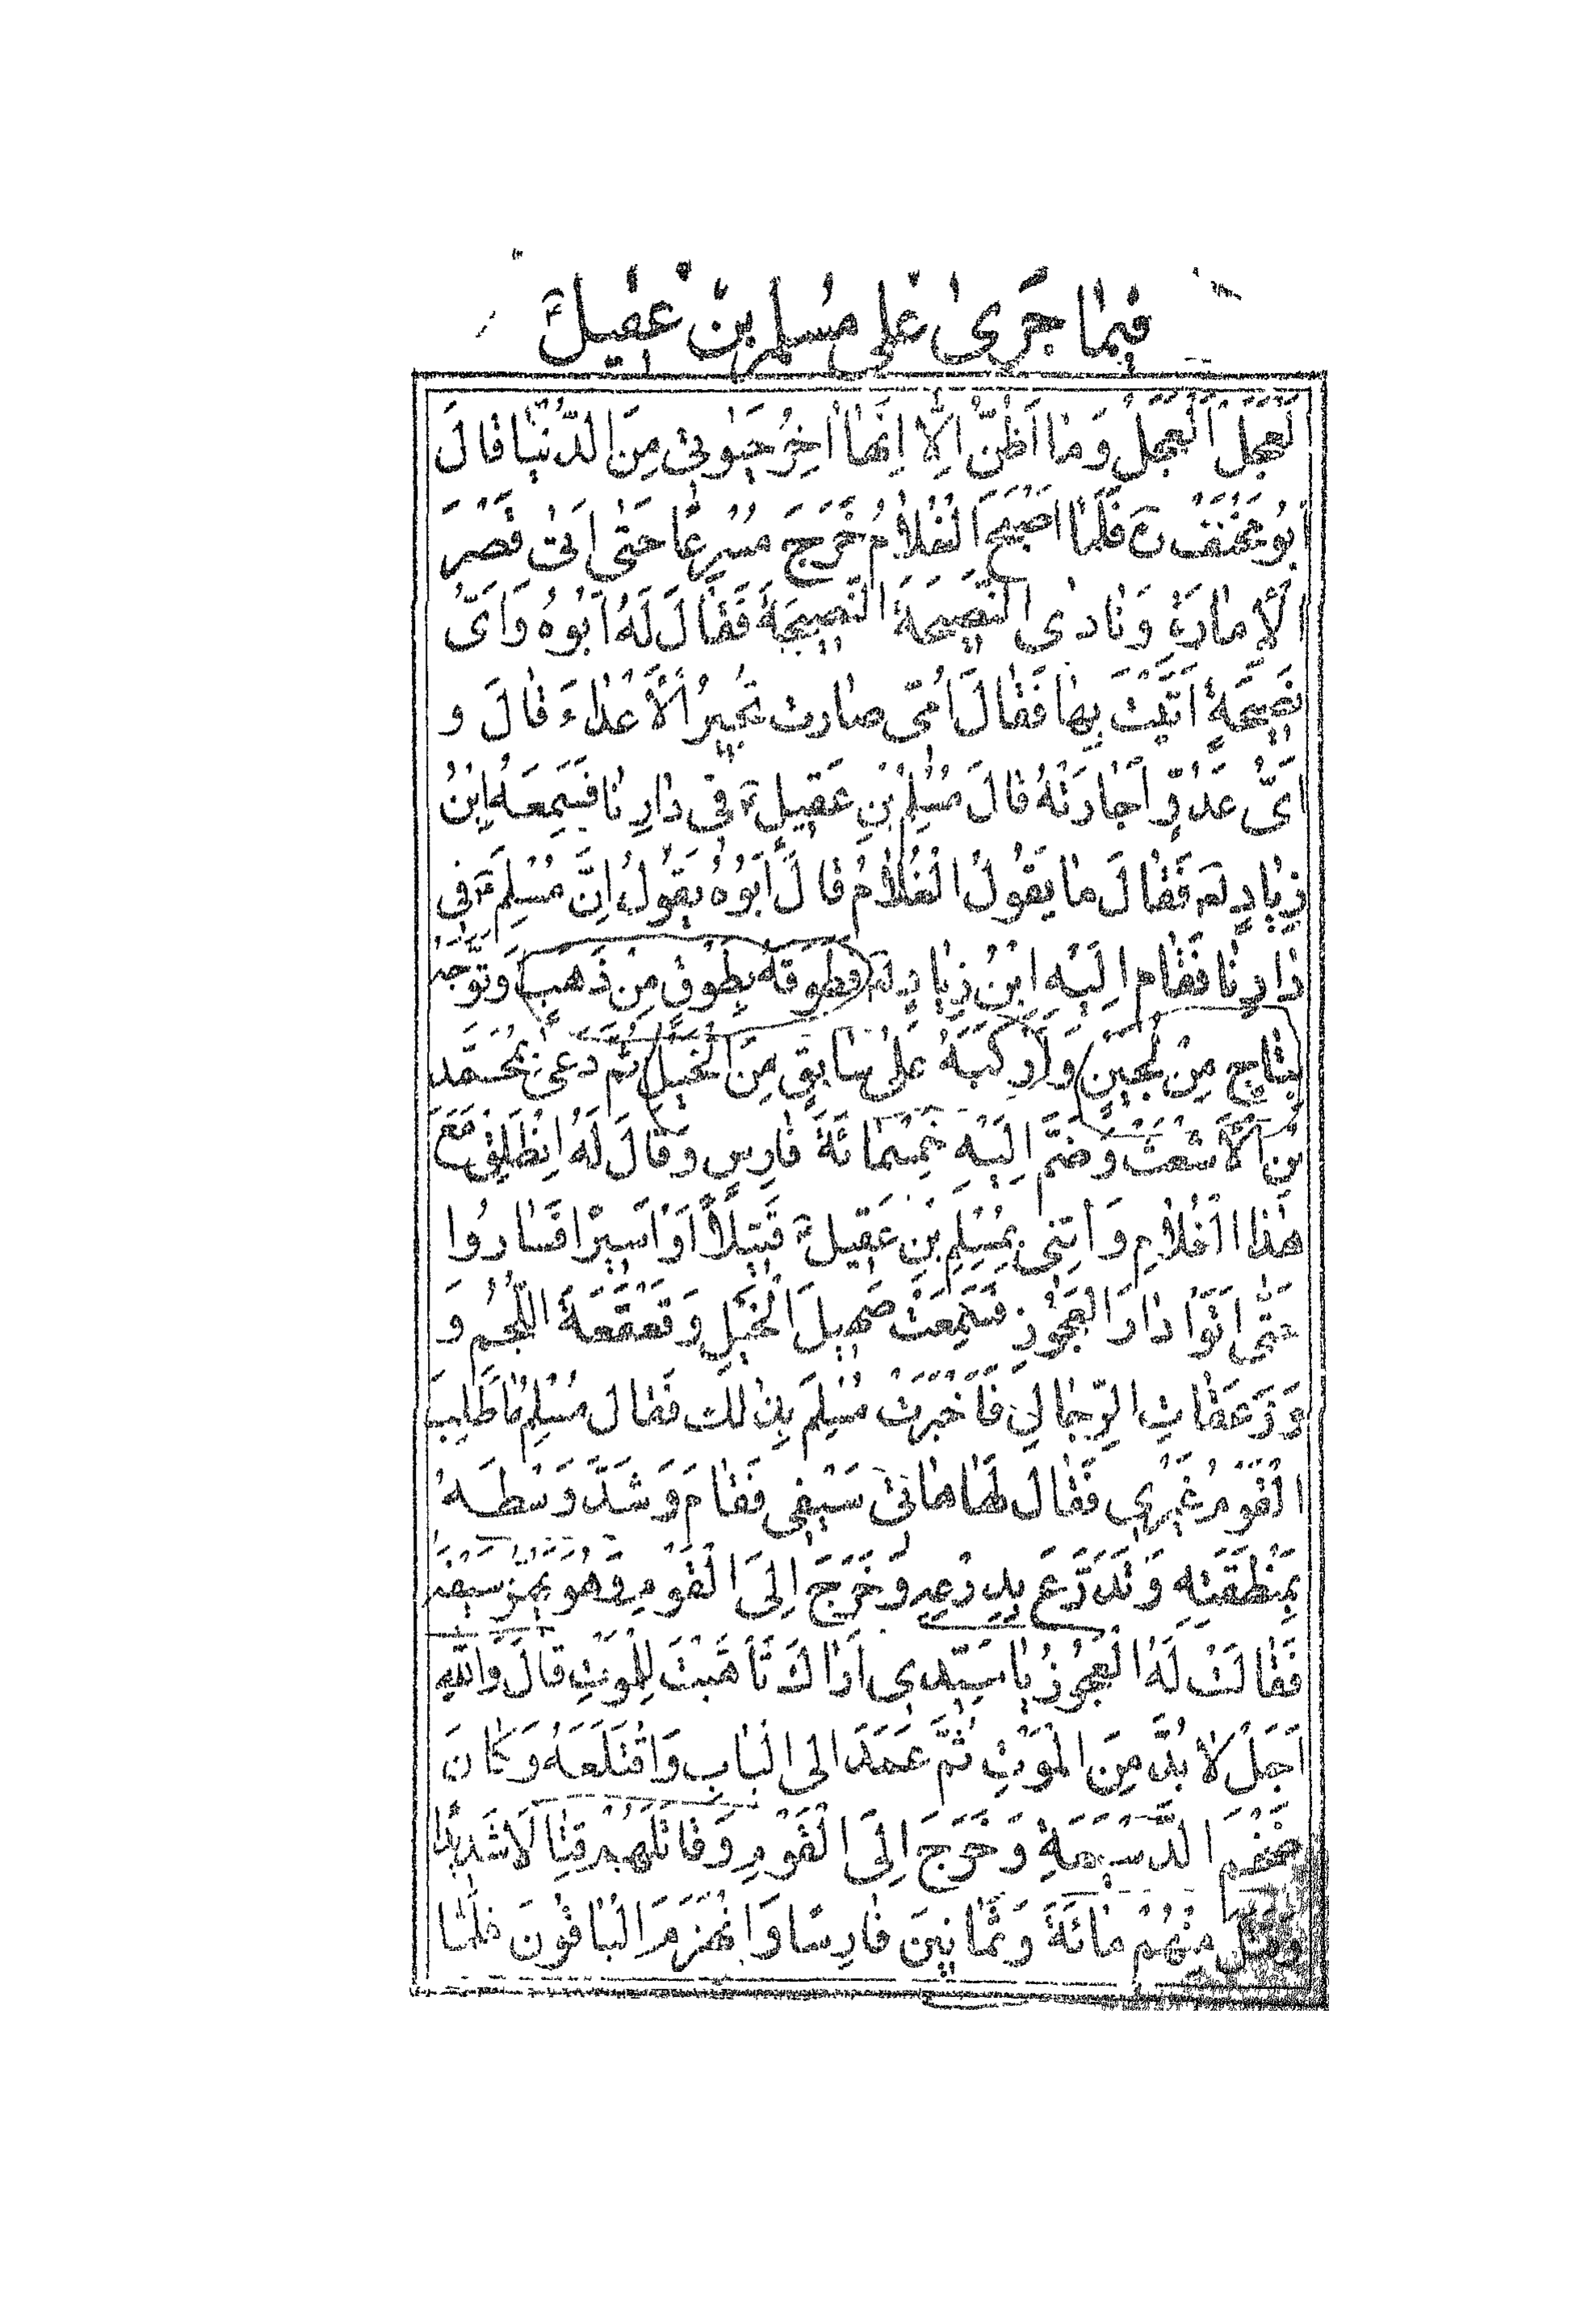 فِيمَا جَرَى عَلَى مُسْلِمِ بْنِ عَقِيلٍ
لْعَجَلَ الْعَجَلَ وَمَا أَظُنُّ إِلَّا إِنَّهَا اٰخِرُ حَيٰوتِي مِنَ الدُّنْيَا قَالَ
ابُو مِخْنَفْ رَه فَلَمَّا اَصْبَحَ الْغُلَامُ خَرَجَ مُسْرِعًا حَتَّى اَتٰى قَصْرَ
الْأِمَارَةِ وَنَادٰى النَّصِيحَةَ النَّصِيحَةَ فَقَالَ لَهُ اَبُوهُ وَاَىُّ
نَصِيحَةٍ اَتَيْتَ بِهَا فَقَالَ اُمِّى صَارَتْ تُجِيرُ الْأَعْدَاءَ قَالَ وَ
اَىُّ عَدُوٍّ اَجَارَتْهُ قَالَ مُسْلِمُ بْنِ عَقِيلٍ ع فِى دَارِنَا فَسَمِعَهُ ابْنُ
زِيَادٍ لع فَقَالَ مَا يَقُولُ الْغُلَامُ قَالَ اَبُوهُ يَقُولُ اِنَّ مُسْلِمَ ع فِى
دَارِنَا فَقَامَ اِلَيْهِ ابْنُ زِيَادٍ لع فَطَوَّقَهُ بِطَوْقٍ مِنْ ذَهَبٍ وَتَوَّجَهُ
بِتَاجٍ مِنْ لُجَيْنٍ وَاَرْكَبَهُ عَلٰى سَابِقٍ مِنَ الْخَيْلِ ثُمَّ دَعٰى بِمُحَمَّدِ
بْنِ الْأَشْعَثْ وَضَمَّ اِلَيْهِ خَمْسَمَائَةَ فَارِسٍ وَقَالَ لَهُ انْطَلِقْ مَعَ
هٰذَا الْغُلَامِ وَاْتِنِى بِمُسْلِمِ بْنِ عَقِيلٍ ع قَتِيلًا اَوْ اَسِيرًا فَسَارُوا
حَتّٰى اَتَوْا دَارَ الْعَجُوزِ فَسَمِعَتْ صَهِيلَ الْخَيْلِ وَقَعْقَعَةَ اللُّجُمِ وَ
وَزَعَقَاتِ الرِّجَالِ فَاَخْبَرَتْ مُسْلِمَ بِذٰلِكَ فَقَالَ مُسْلِمُ مَا طَلِبَ
الْقَوْمُ غَيْرِى فَقَالَ لَهَا هَاتِىْ سَيْفِى فَقَامَ وَشَدَّ وَسْطَهُ
بِمَنْطَقَتِهِ وَتَدَرَّعَ بِدِرْعِهِ وَخَرَجَ اِلَى الْقَوْمِ وَهُوَ يَهُزُّ سَيْفَهُ
فَقَالَتْ لَهُ الْعَجُوزُ يَا سَيِّدِى اَرَاكَ تَأَهَّبْتَ لِلْمَوْتِ قَالَ وَاللّٰهِ
اَجَلْ لَا بُدَّ مِنَ الْمَوْتِ ثُمَّ عَمَدَ اِلى الْبَابِ وَاقْتَلَعَهُ وَكَانَ
ضَخْمَ الدَّسِيعَةِ وَخَرَجَ اِلَى الْقَوْمِ وَقَاتَلَهُمْ قِتَالًا شَدِيدًا
وَقَتَلَ مِنْهُمْ مَائَةَ وَثَمَانِينَ فَارِسًا وَانْهَزَمَ الْبَاقُونَ فَلَمَّا